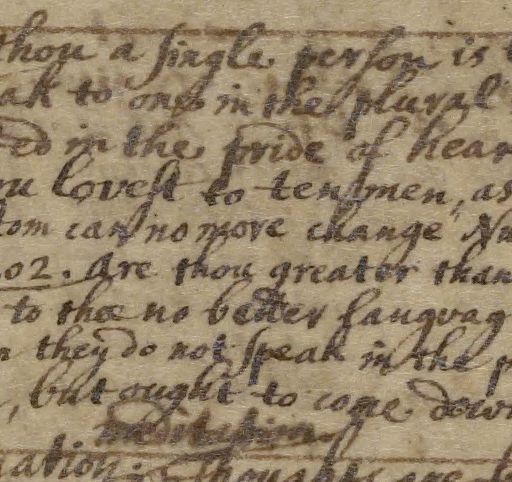 thou a single person is
ak to one in the plural
ed in the pride of hear
u lovest to ten men, as
tom can no more change Nu
02. Are thou greater than
to thee no better languag
n they do not speak in the p
, but ought to come dow
meditation
ation: thoughts are